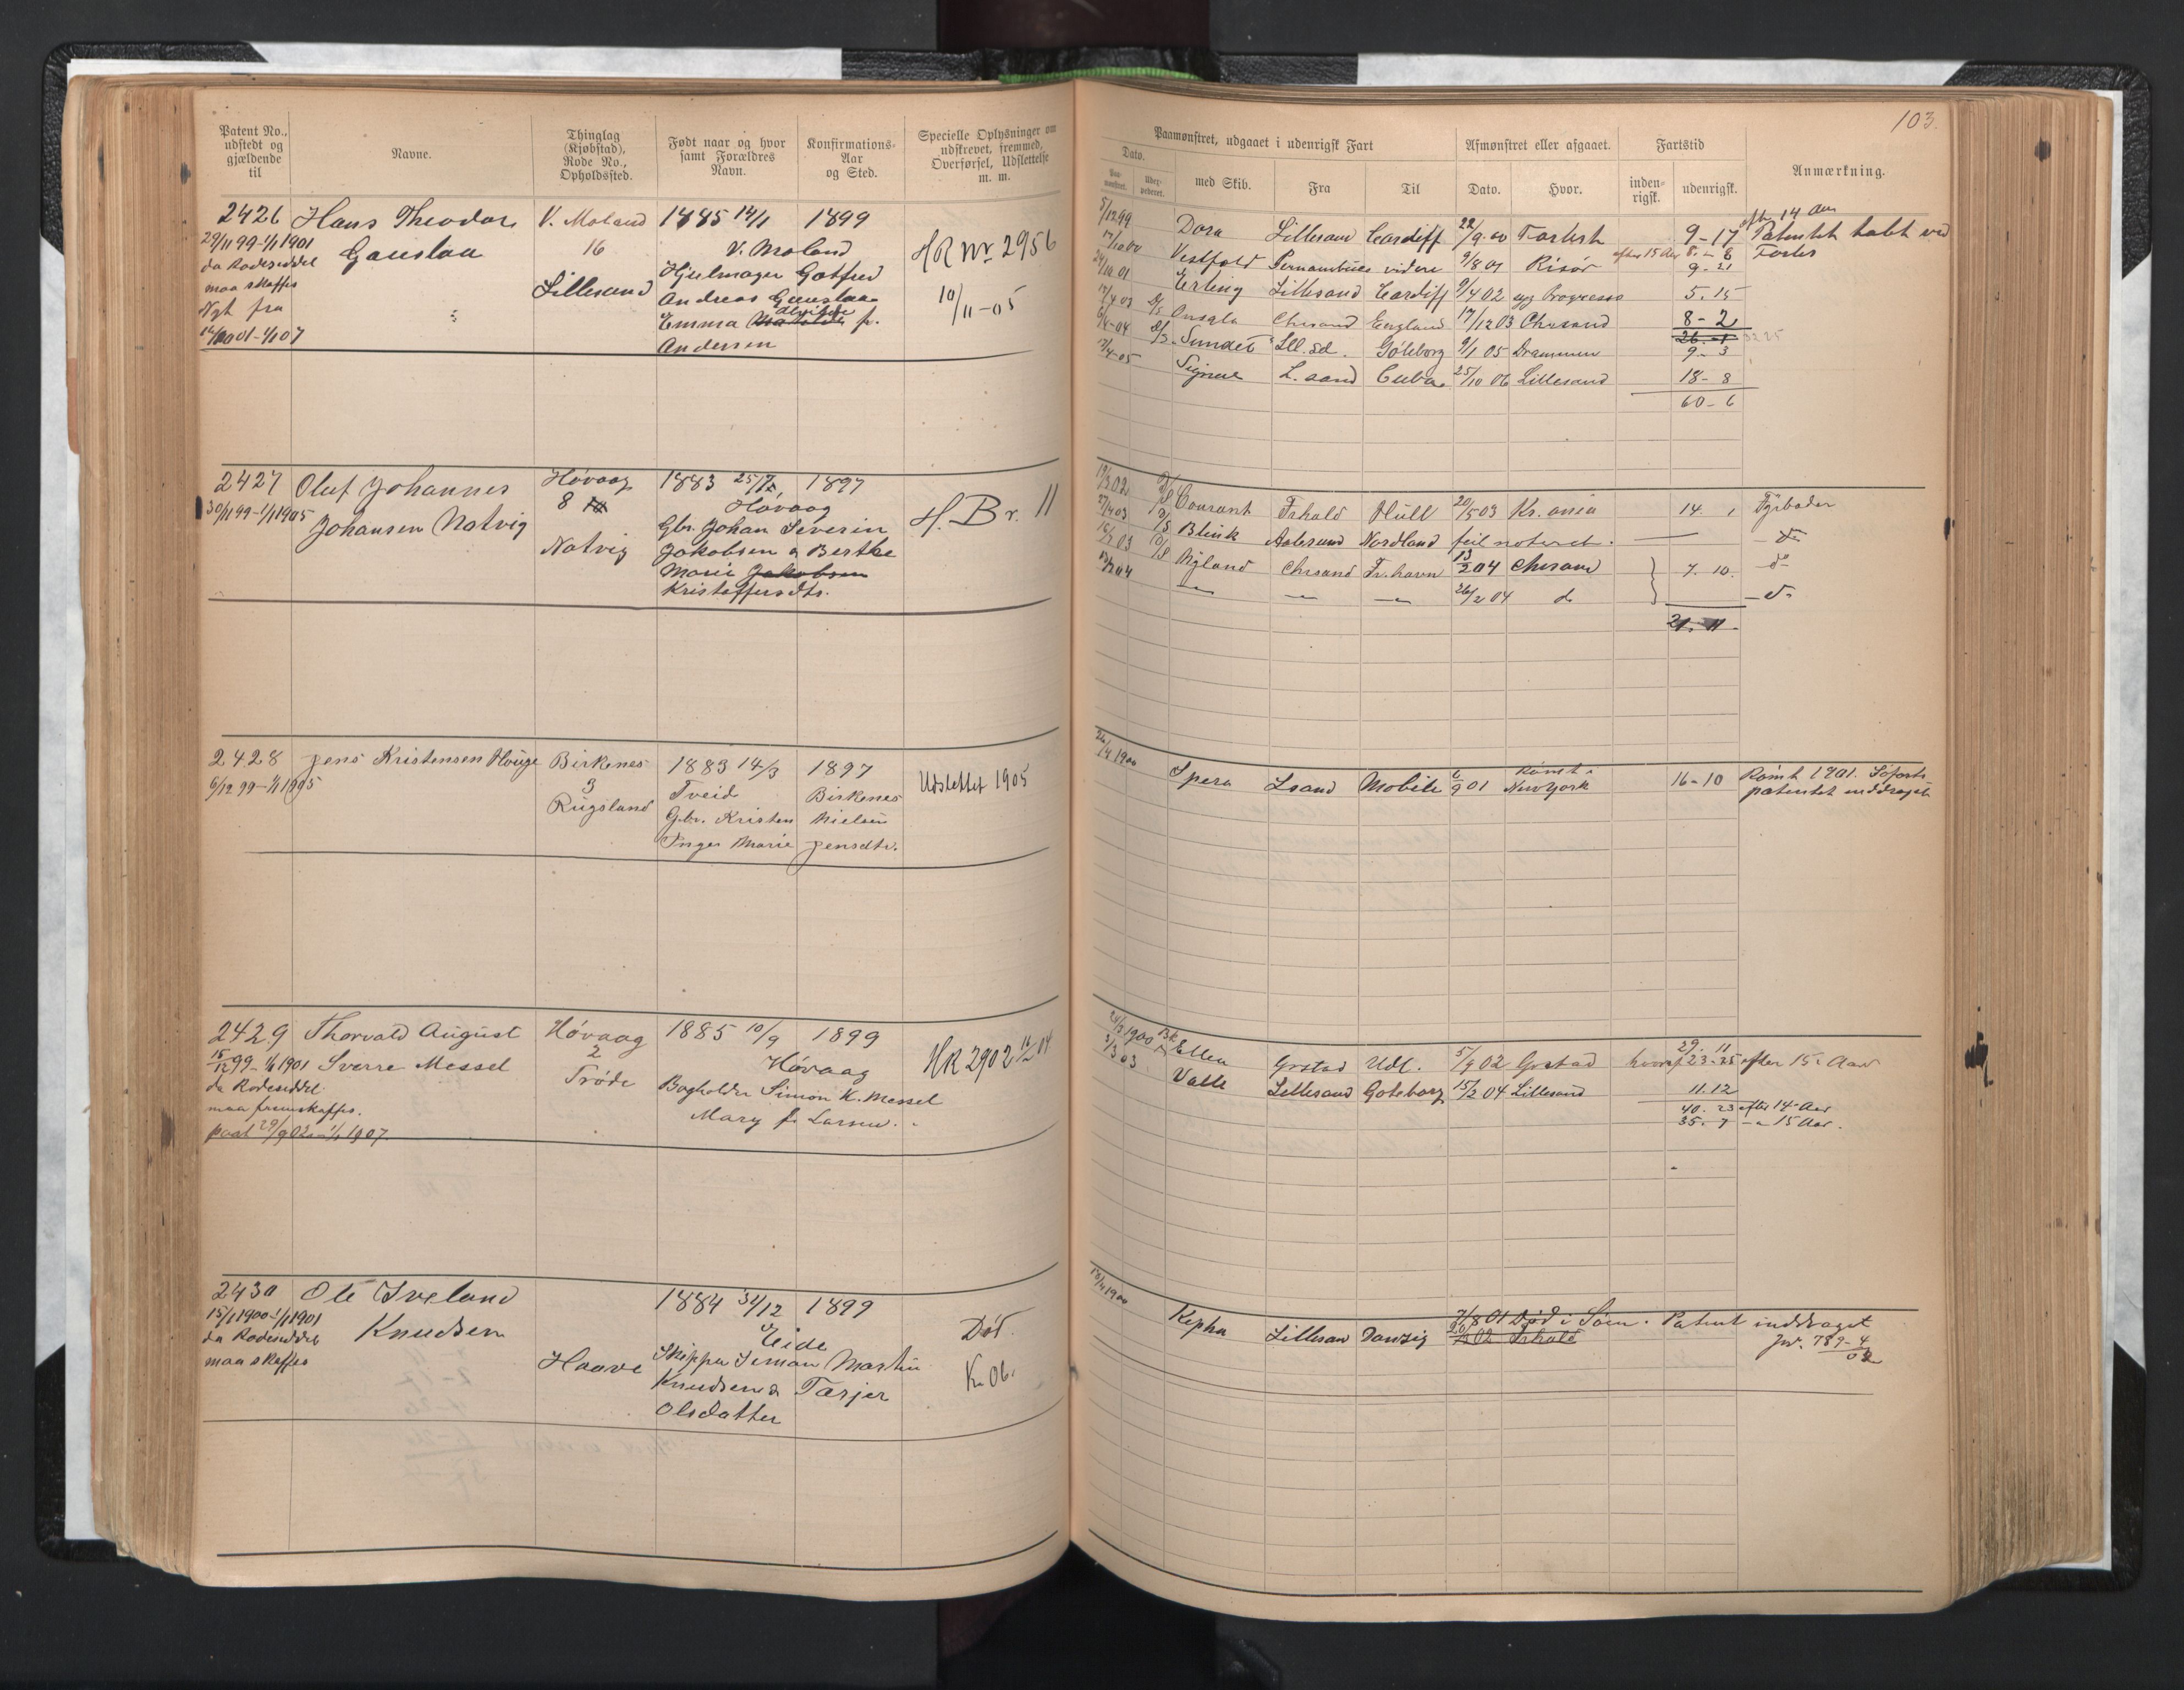 Patent No.,
udstedt og
gjældende
til
Navne.
Thinglag
(Kjøbstad),
Rode No.,
Opholdssted.
Født naar og hvor
samt Forældres
Navn.
Konfirmations-
Aar
og Sted.
Specielle Oplysninger om
udskrevet, fremmed,
Overførsel, Udslettelse
m. m.
2426 Hans Theodor V. Moland 1885 14/1 1899
29/11 99-1/1 1901 Gauslaa 16 V. Moland HR Nr 2956
da Rodeseddel Hjulmager Gotfred
maa skaffes Lillesand Andreas Gauslaa 10/11-05
Nyt fra Emma Mathilde f.
01-1/1 07 Andersen
2427 Oluf Johannes Høvaag 1883 25/12 1897
30/11 99-1/1 1905 Johansen Natvig 8 Høvaag H. Br. 11
Gbr. Johan Severin
Natvig Jakobsen & Berthe
Marie Jakobsen
Kristoffersdtr.
2428 Jens Kristensen Houge Birkenes 1883 14/3 1897 Udslettet 1905
6/12 99-1/1 1905 3 Tveid Birkenes
Rugsland Gbr. Kristen Nielsen
Inger Marie Jensdtr.
2429 Thorvald August Høvaag 1885 10/9 1899
15/12 99-1/1 1901 Sverre Messel 2 Høvaag HR 2902
da Rodeseddel Trøde Bogholder Simon K. Messel
maa fremskaffes. Mary f. Larsen.
29/9 02-1/1 1907
2430 Ole Iveland 1884 31/12 1899
15/1 1900-1/1 1901 Knudsen Eide Død.
da Rodeseddel Haave Skipper Simon Martin
maa skaffes Knudsen & Tarjer K. 06.
Olsdatter
103.
Paamønstret, udgaaet i udenrigsk Fart
Afmønstret eller afgaaet.
Fartstid
Anmærkning.
Dato.
med Skib.
Fra
Til
Dato.
Hvor.
inden-
rigsk.
udenrigsk.
5/12 99 Dora Lillesand Cardiff 22/9 00 Forlist 9-17 Patentet tabt ved
Vestfold Pernambuco videre 9/8 01 Risør efter 15 Aar Forlis
9-21
Erling Lillesand Cardiff 9/4 02 Progresso 5.15
D/S Onsala Chrsand England 17/12 03 Chrsand 8-2
D/S Sundet Lll.sd. Göteborg 9/1 05 Drammen 9-3
Signal L.sand Cuba 25/10 06 Lillesand 18-8
60-6
D/S Courant Frhald Hull 20/5 03 Kr.ania 14. 1 Fyrbøder
D/S Blink Aalesund Nordland feil noteret. — do
D/S Rygland Chrsand Fr.havn 13/2 04 Chrsand 7.10. do
— — — 26/2 04 do — do
21. 11
1900 Spera Lsand Mobile 6/9 01 Rømt i New York 16-10 Rømt 1901. Søfarts-
patentet inddraget
1900 Ellen Grstad Udl. 5/9 02 Grstad 29. 11
hvoraf 23-25 efter 15 Aar
3/3 03 Valle Lillesand Goteborg 15/2 04 Lillesand 11.12
40. 23 efter 14 Aar
35. 7 - 15 Aar.
1900 Kepha Lillesan Danzig 7/8 01 Død i Søen. Patent inddraget
02 Frhald Jnr. 789-4/02